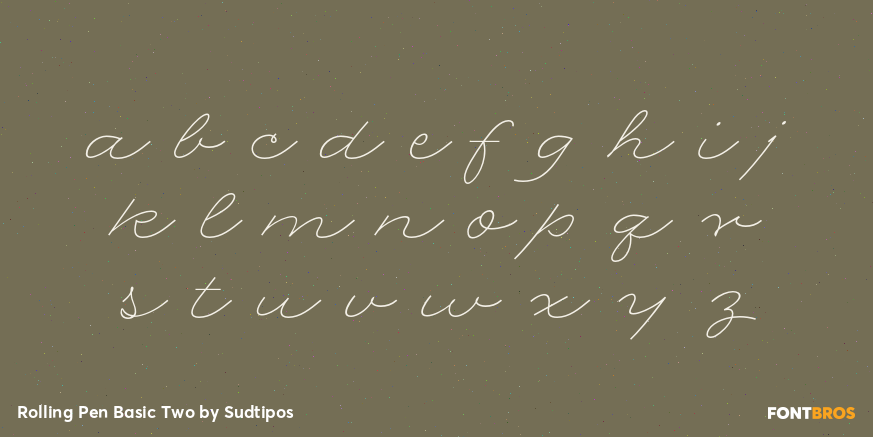 a b c d e f g h i j
k l m n o p q r
s t u v w x y z
Rolling Pen Basic Two by Sudtipos
FONTBROS